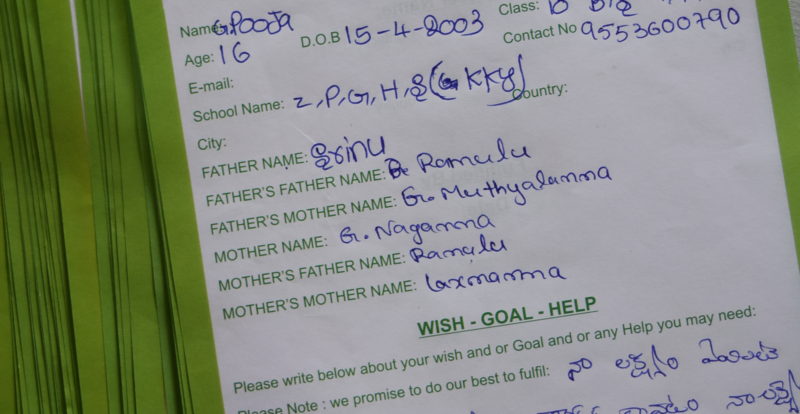 Name: G POOJA Class: 10
Age: 16 D.O.B 15-4-2003 Contact No 9553600790
E-mail:
School Name: Z.P.G.H.S (G KKY) Country:
City:
FATHER NAME: Srinu
FATHER'S FATHER NAME: Ramulu
FATHER'S MOTHER NAME: G. Muthyalamma
MOTHER NAME: G. Nagamma
MOTHER'S FATHER NAME: Ramulu
MOTHER'S MOTHER NAME: Laxmamma
WISH - GOAL - HELP
Please write below about your wish and or Goal and or any Help you may need:
Please Note : we promise to do our best to fulfil: నా లక్ష్యం